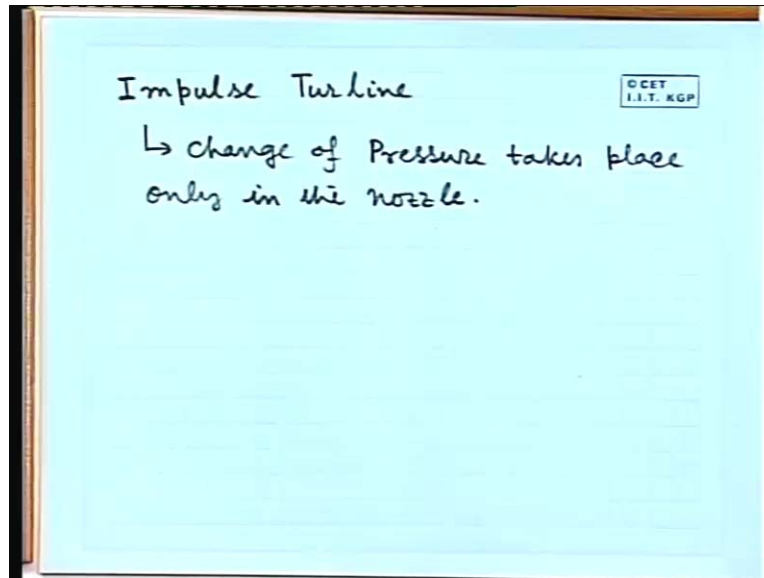 Impulse Turbine
© CET
I.I.T. KGP
↳ change of Pressure takes place
only in the nozzle.